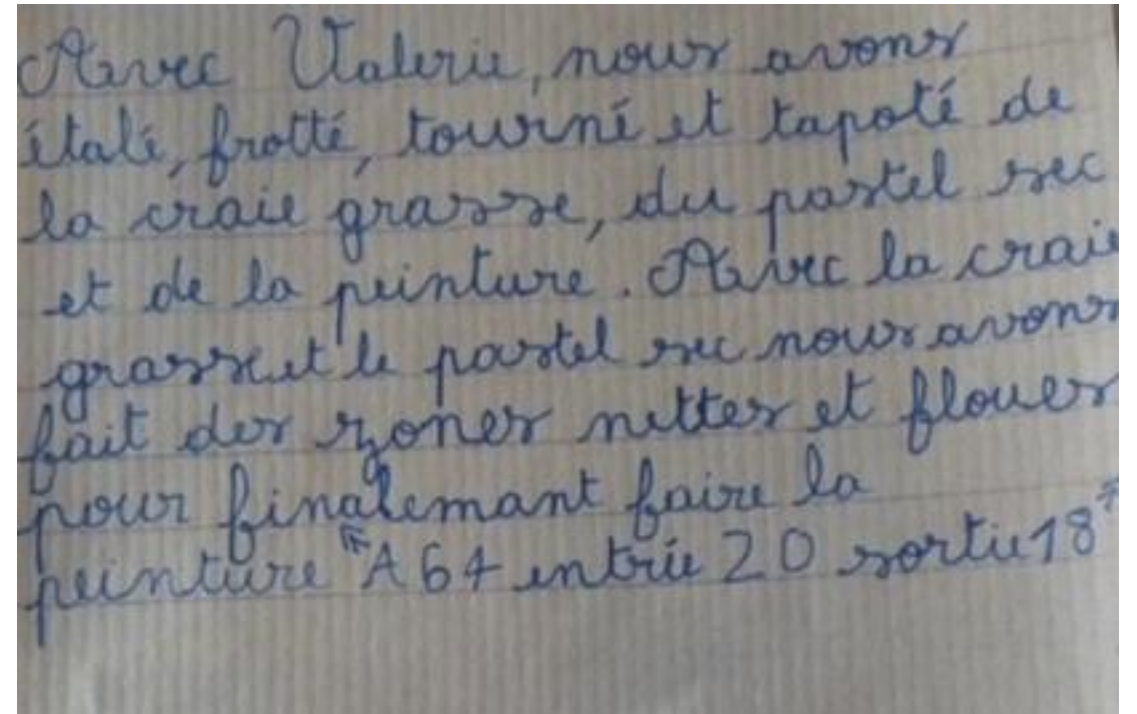 Avec Valerie, nous avons
étalé, frotté, tourné et tapoté de
la craie grasse, du pastel sec
et de la peinture. Avec la craie
grasse et le pastel sec nous avons
fait des zones nettes et floues
pour finalemant faire la
peinture "A64 entrée 20 sortie 18"